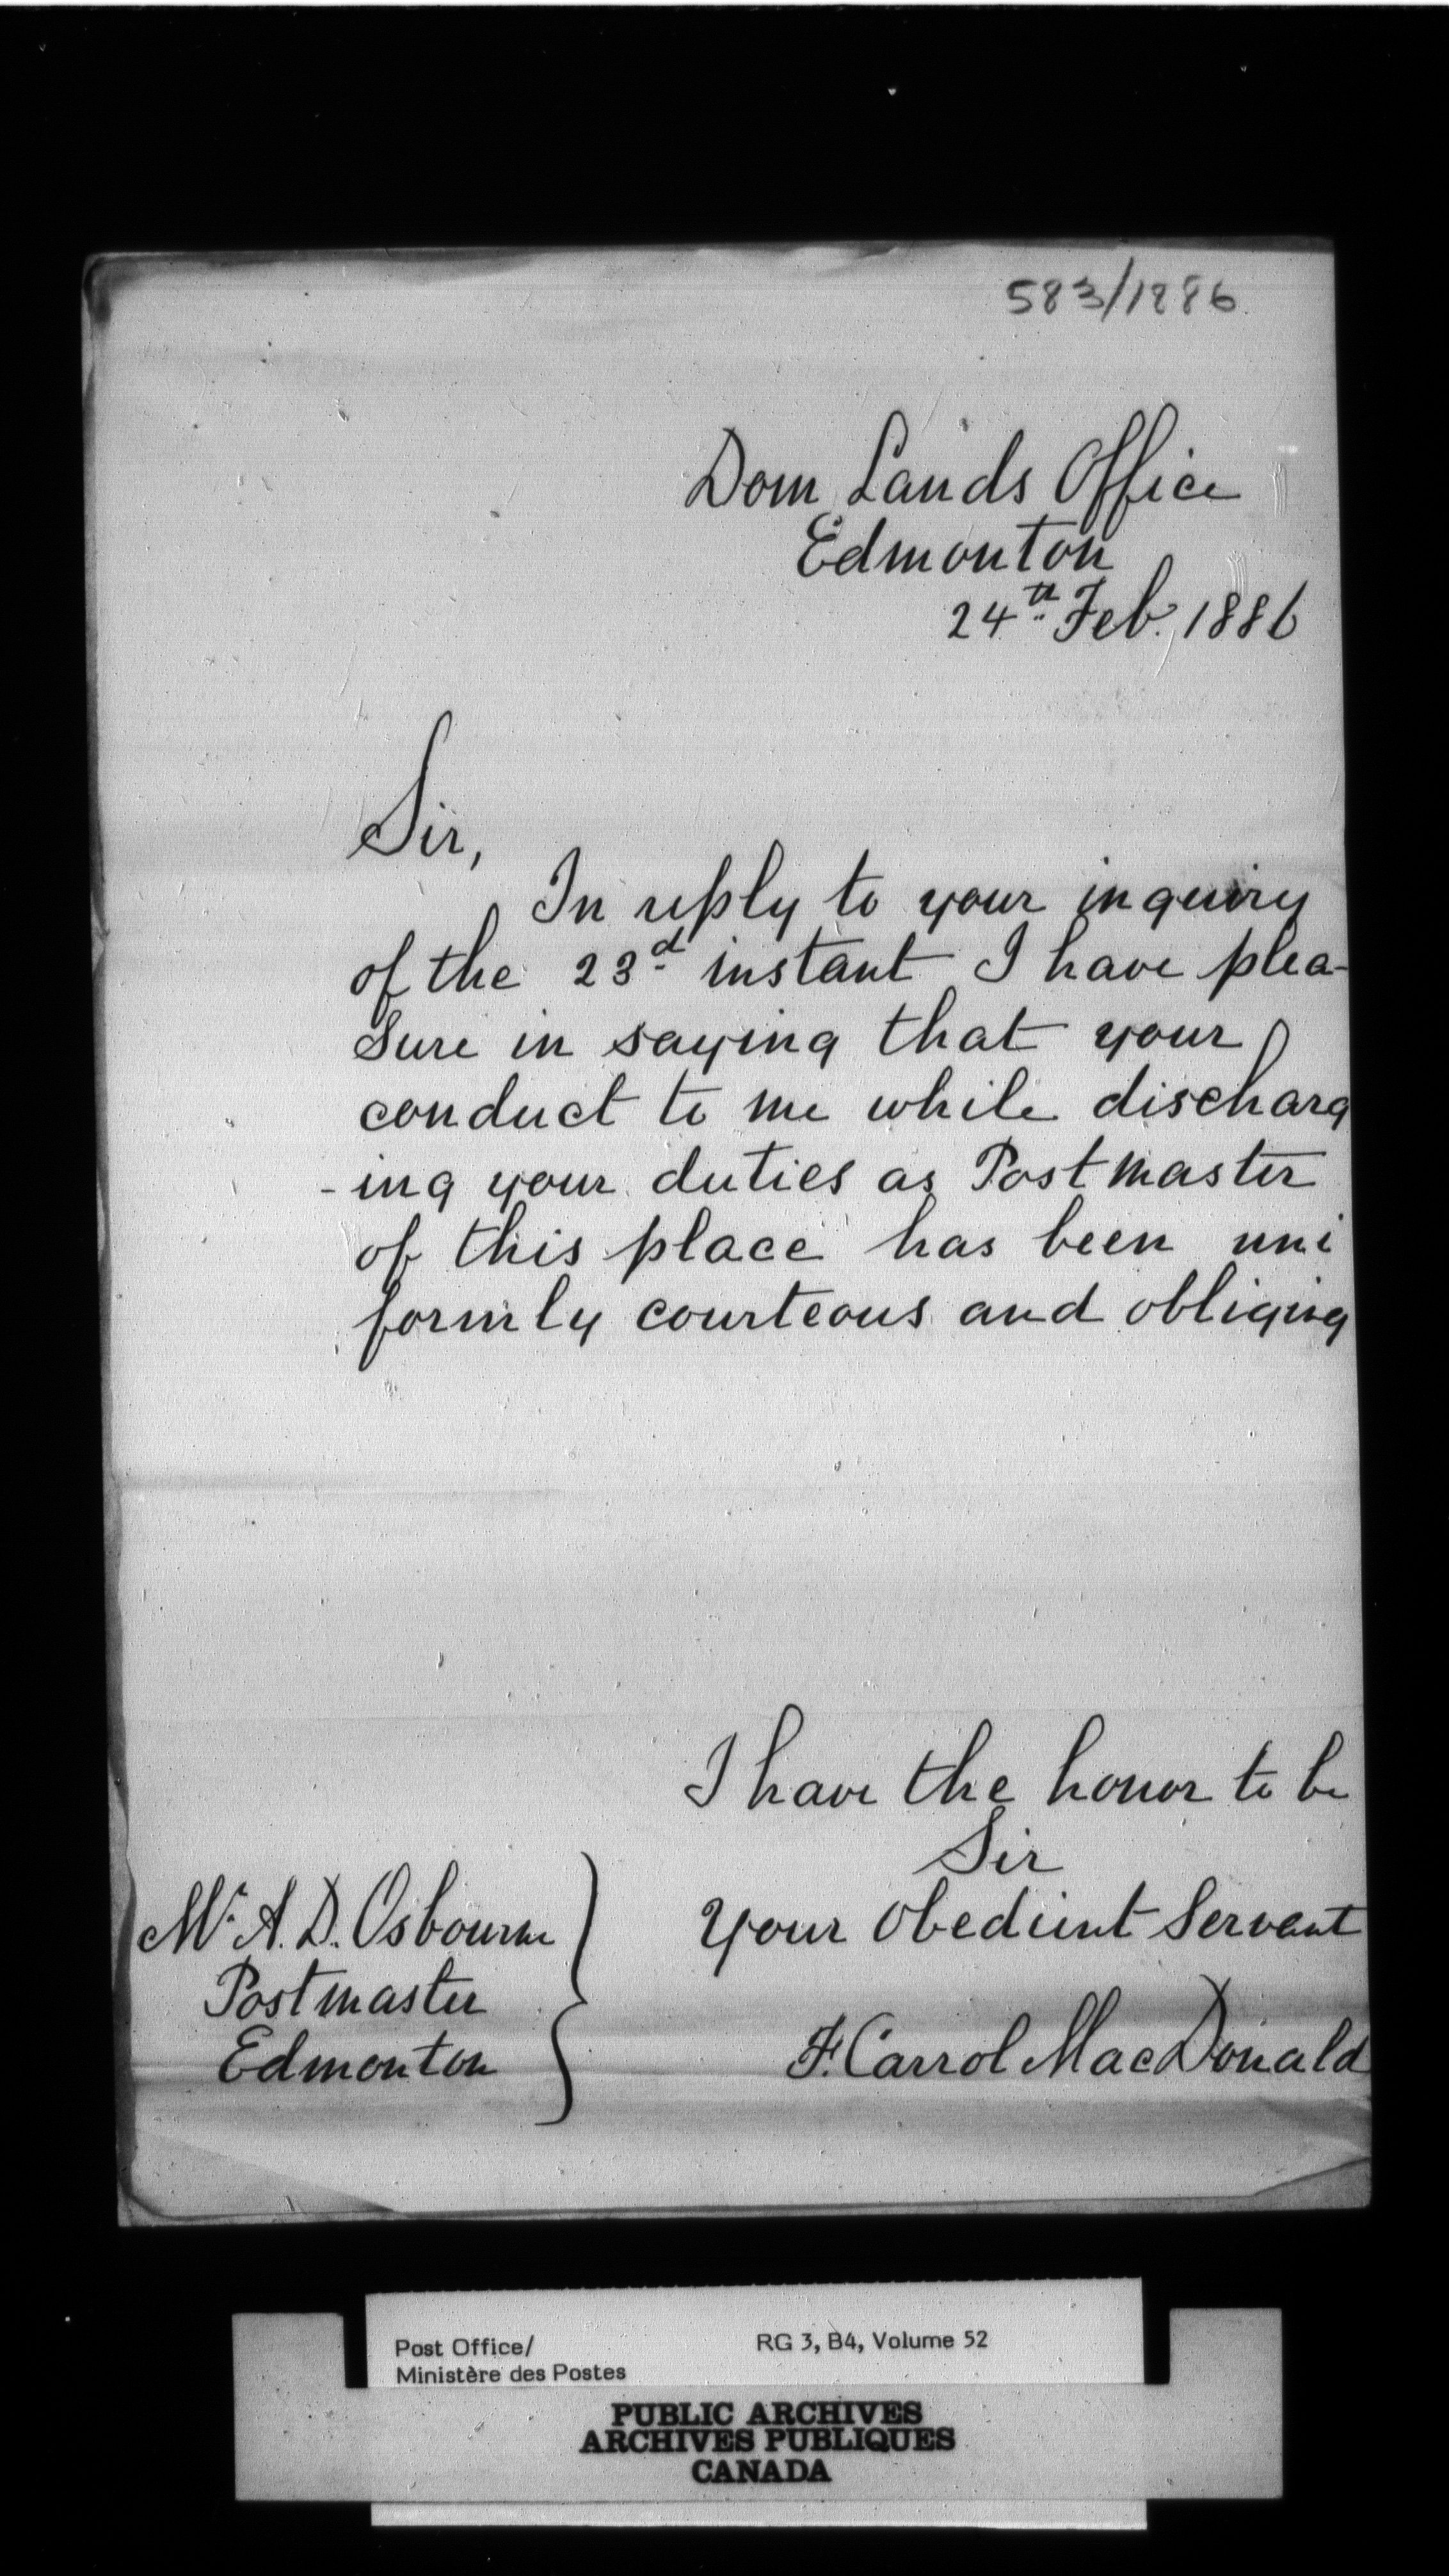 583/1886
Dom Lands Office
Edmonton
24th Feb. 1886
Sir,
In reply to your inquiry
of the 23d instant I have plea-
sure in saying that your
conduct to me while discharg
-ing your duties as Postmaster
of this place has been uni
formly courteous and obliging
I have the honor to be
Sir
Your Obedient Servant
F. Carrol MacDonald
Mr. A. D. Osbourne
Postmaster
Edmonton
Post Office/
Ministère des Postes
RG 3, B4, Volume 52
PUBLIC ARCHIVES
ARCHIVES PUBLIQUES
CANADA